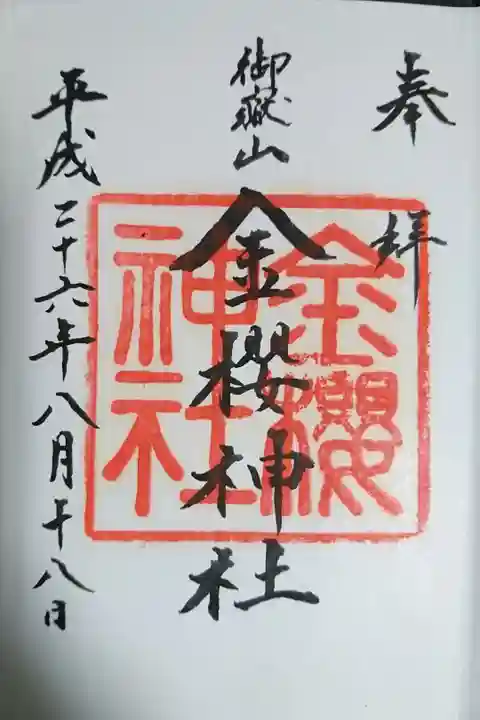 奉拝
御嶽山
金櫻神社
金櫻
神社
平成二十六年八月十八日